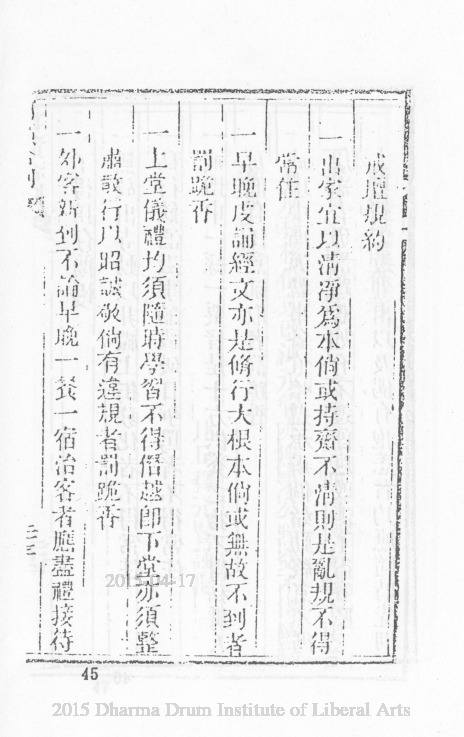 戒壇規約
一出家宜以清淨為本倘或持齋不清則是亂規不得
常住
一早晚皮誦經文亦是脩行大根本倘或無故不到者
罰跪香
一上堂儀禮均須隨時學習不得僭越即下堂亦須整
肅散行以昭誠敬倘有違規者罰跪香
一外客新到不論早晚一餐一宿治客者應盡禮接待
二三
2015-04-17
45
2015 Dharma Drum Institute of Liberal Arts